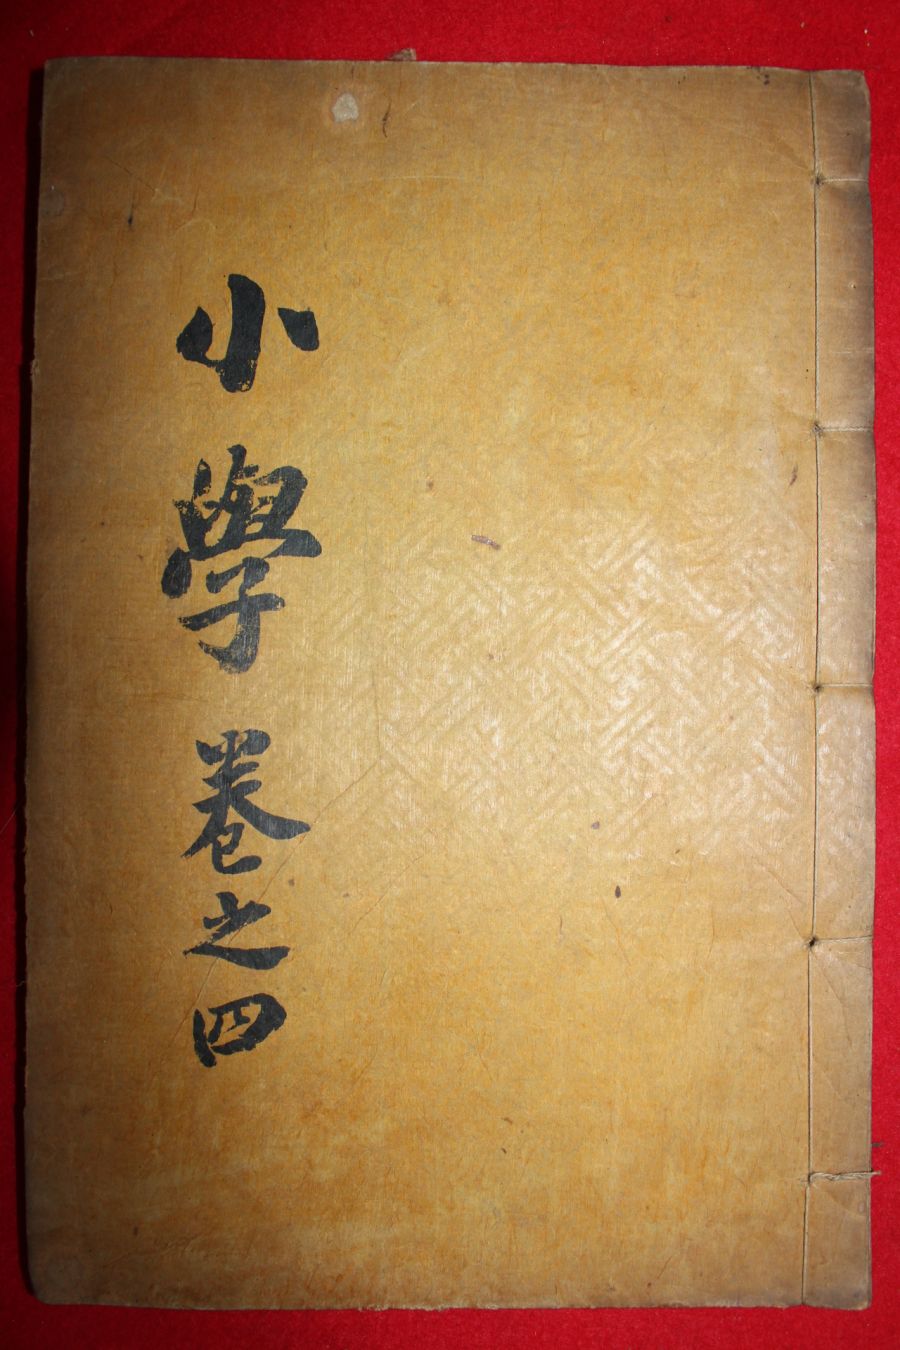 小學卷之四